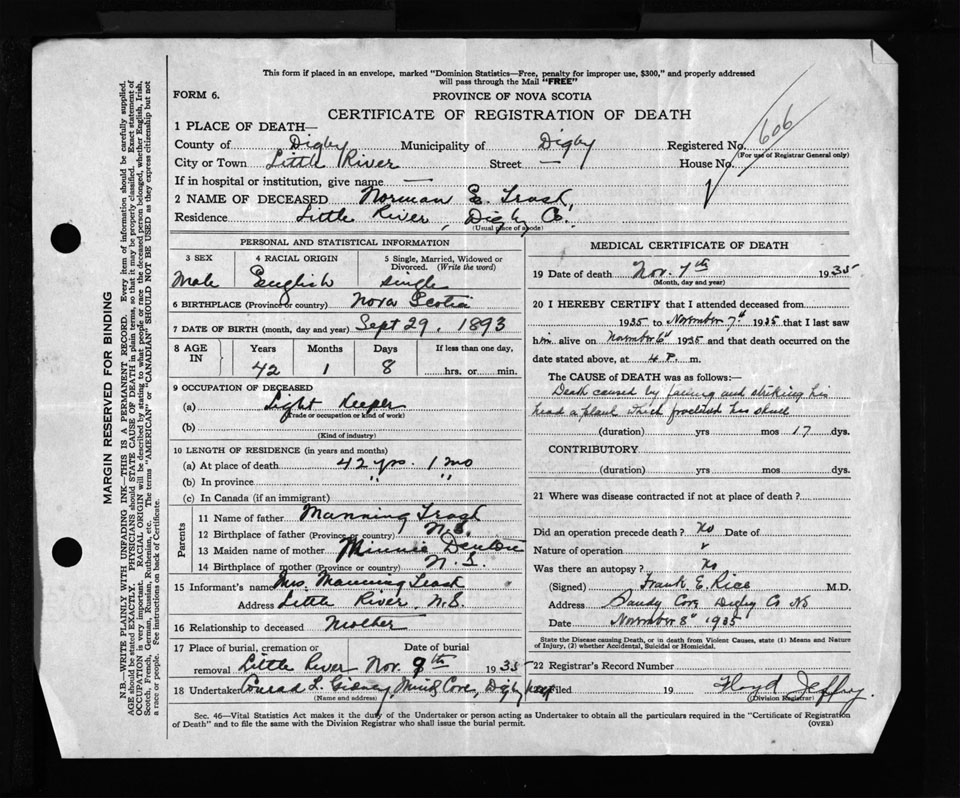 This form if placed in an envelope, marked "Dominion Statistics—Free, penalty for improper use, $300," and properly addressed
will pass through the Mail "FREE"
FORM 6.
PROVINCE OF NOVA SCOTIA
CERTIFICATE OF REGISTRATION OF DEATH
606
1 PLACE OF DEATH—
County of Digby Municipality of Digby Registered No.
(For use of Registrar General only)
City or Town Little River Street — House No.
If in hospital or institution, give name —
2 NAME OF DECEASED Norman E. Trask,
Residence Little River, Digby Co.
(Usual place of abode)
PERSONAL AND STATISTICAL INFORMATION
3 SEX
Male
4 RACIAL ORIGIN
English
5 Single, Married, Widowed or
Divorced. (Write the word)
single
6 BIRTHPLACE (Province or country) Nova Scotia
7 DATE OF BIRTH (month, day and year) Sept 29, 1893
8 AGE IN
Years Months Days If less than one day,
42 1 8 hrs. or min.
9 OCCUPATION OF DECEASED
(a) Light Keeper
(Trade or occupation or kind of work)
(b)
(Kind of industry)
10 LENGTH OF RESIDENCE (in years and months)
(a) At place of death 42 yrs. 1 mo
(b) In province " "
(c) In Canada (if an immigrant)
Parents
11 Name of father Manning Trask
12 Birthplace of father (Province or country) N.S.
13 Maiden name of mother Minnie Denton
14 Birthplace of mother (Province or country) N.S.
15 Informant's name Mrs. Manning Trask
Address Little River, N.S.
16 Relationship to deceased Mother
17 Place of burial, cremation or removal Little River
Date of burial
Nov. 9th 1935
18 Undertaker Conrad L. Gidney Mink Cove, Digby
(Name and address)
MEDICAL CERTIFICATE OF DEATH
19 Date of death Nov. 7th 1935
(Month, day and year)
20 I HEREBY CERTIFY that I attended deceased from
1935 to November 7th 1935 that I last saw
him alive on November 6th 1935 and that death occurred on the
date stated above, at 4 P. m.
The CAUSE of DEATH was as follows:—
Death caused by falling and striking his
head a plank which fractured his skull
(duration) yrs mos 17 dys.
CONTRIBUTORY
(duration) yrs. mos. dys.
21 Where was disease contracted if not at place of death?
Did an operation precede death? No Date of
Nature of operation
Was there an autopsy? No
(Signed) Frank E. Rice M.D.
Address Sandy Cove Digby Co NS
Date November 8th 1935
State the Disease causing Death, or in death from Violent Causes, state (1) Means and Nature
of Injury, (2) whether Accidental, Suicidal or Homicidal.
22 Registrar's Record Number
Filed 19 Floyd Jeffrey.
(Division Registrar)
Sec. 46—Vital Statistics Act makes it the duty of the Undertaker or person acting as Undertaker to obtain all the particulars required in the "Certificate of Registration
of Death" and to file the same with the Division Registrar who shall issue the burial permit.
(OVER)
MARGIN RESERVED FOR BINDING
N.B.—WRITE PLAINLY WITH UNFADING INK—THIS IS A PERMANENT RECORD. Every item of information should be carefully supplied.
AGE should be stated EXACTLY. PHYSICIANS should STATE CAUSE OF DEATH in plain terms, so that it may be properly classified. Exact statement of
OCCUPATION is very important. RACIAL ORIGIN will be described by stating to what people or race the deceased person belonged, whether English, Irish,
Scotch, French, German, Russian, Ruthenian, etc. The terms "AMERICAN" or "CANADIAN" SHOULD NOT BE USED as they express citizenship but not
a race or people. Fee instructions on back of Certificate.